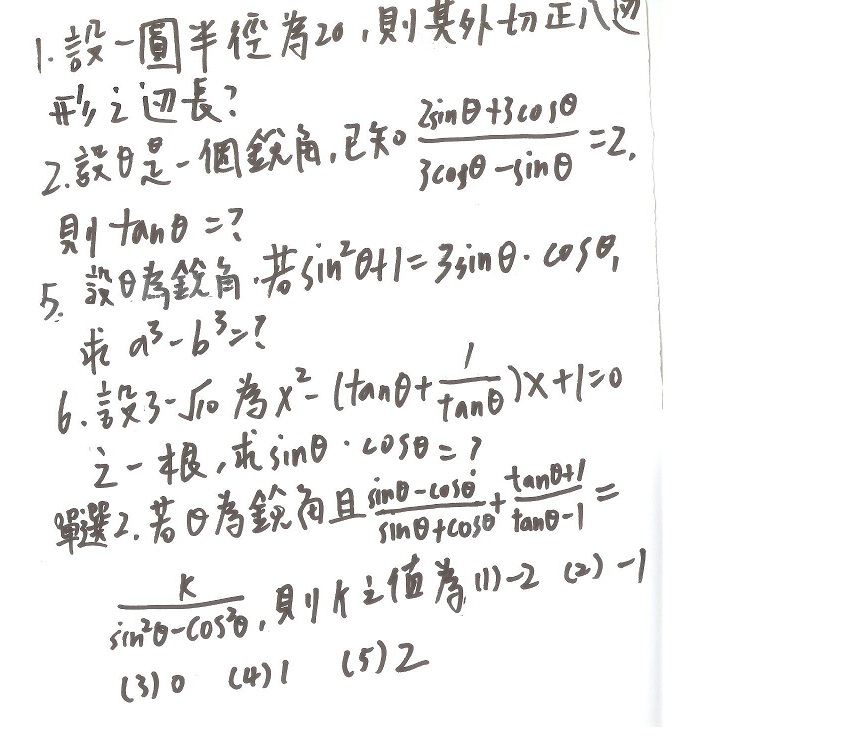 1. 設一圓半徑為20，則其外切正八边
形之边長？
2. 設θ是一個銳角，已知 (2sinθ+3cosθ)/(3cosθ-sinθ) = 2,
則 tanθ = ?
5. 設θ為銳角，若sin²θ+1=3sinθ·cosθ,
求 a³-b³=?
6. 設3-√10 為 x²-(tanθ+1/tanθ)x+1=0
之一根，求sinθ·cosθ=?
單選2. 若θ為銳角且 (sinθ-cosθ)/(sinθ+cosθ) + (tanθ+1)/(tanθ-1) =
k/(sin²θ-cos²θ), 則k之值為 (1)-2 (2)-1
(3)0 (4)1 (5)2